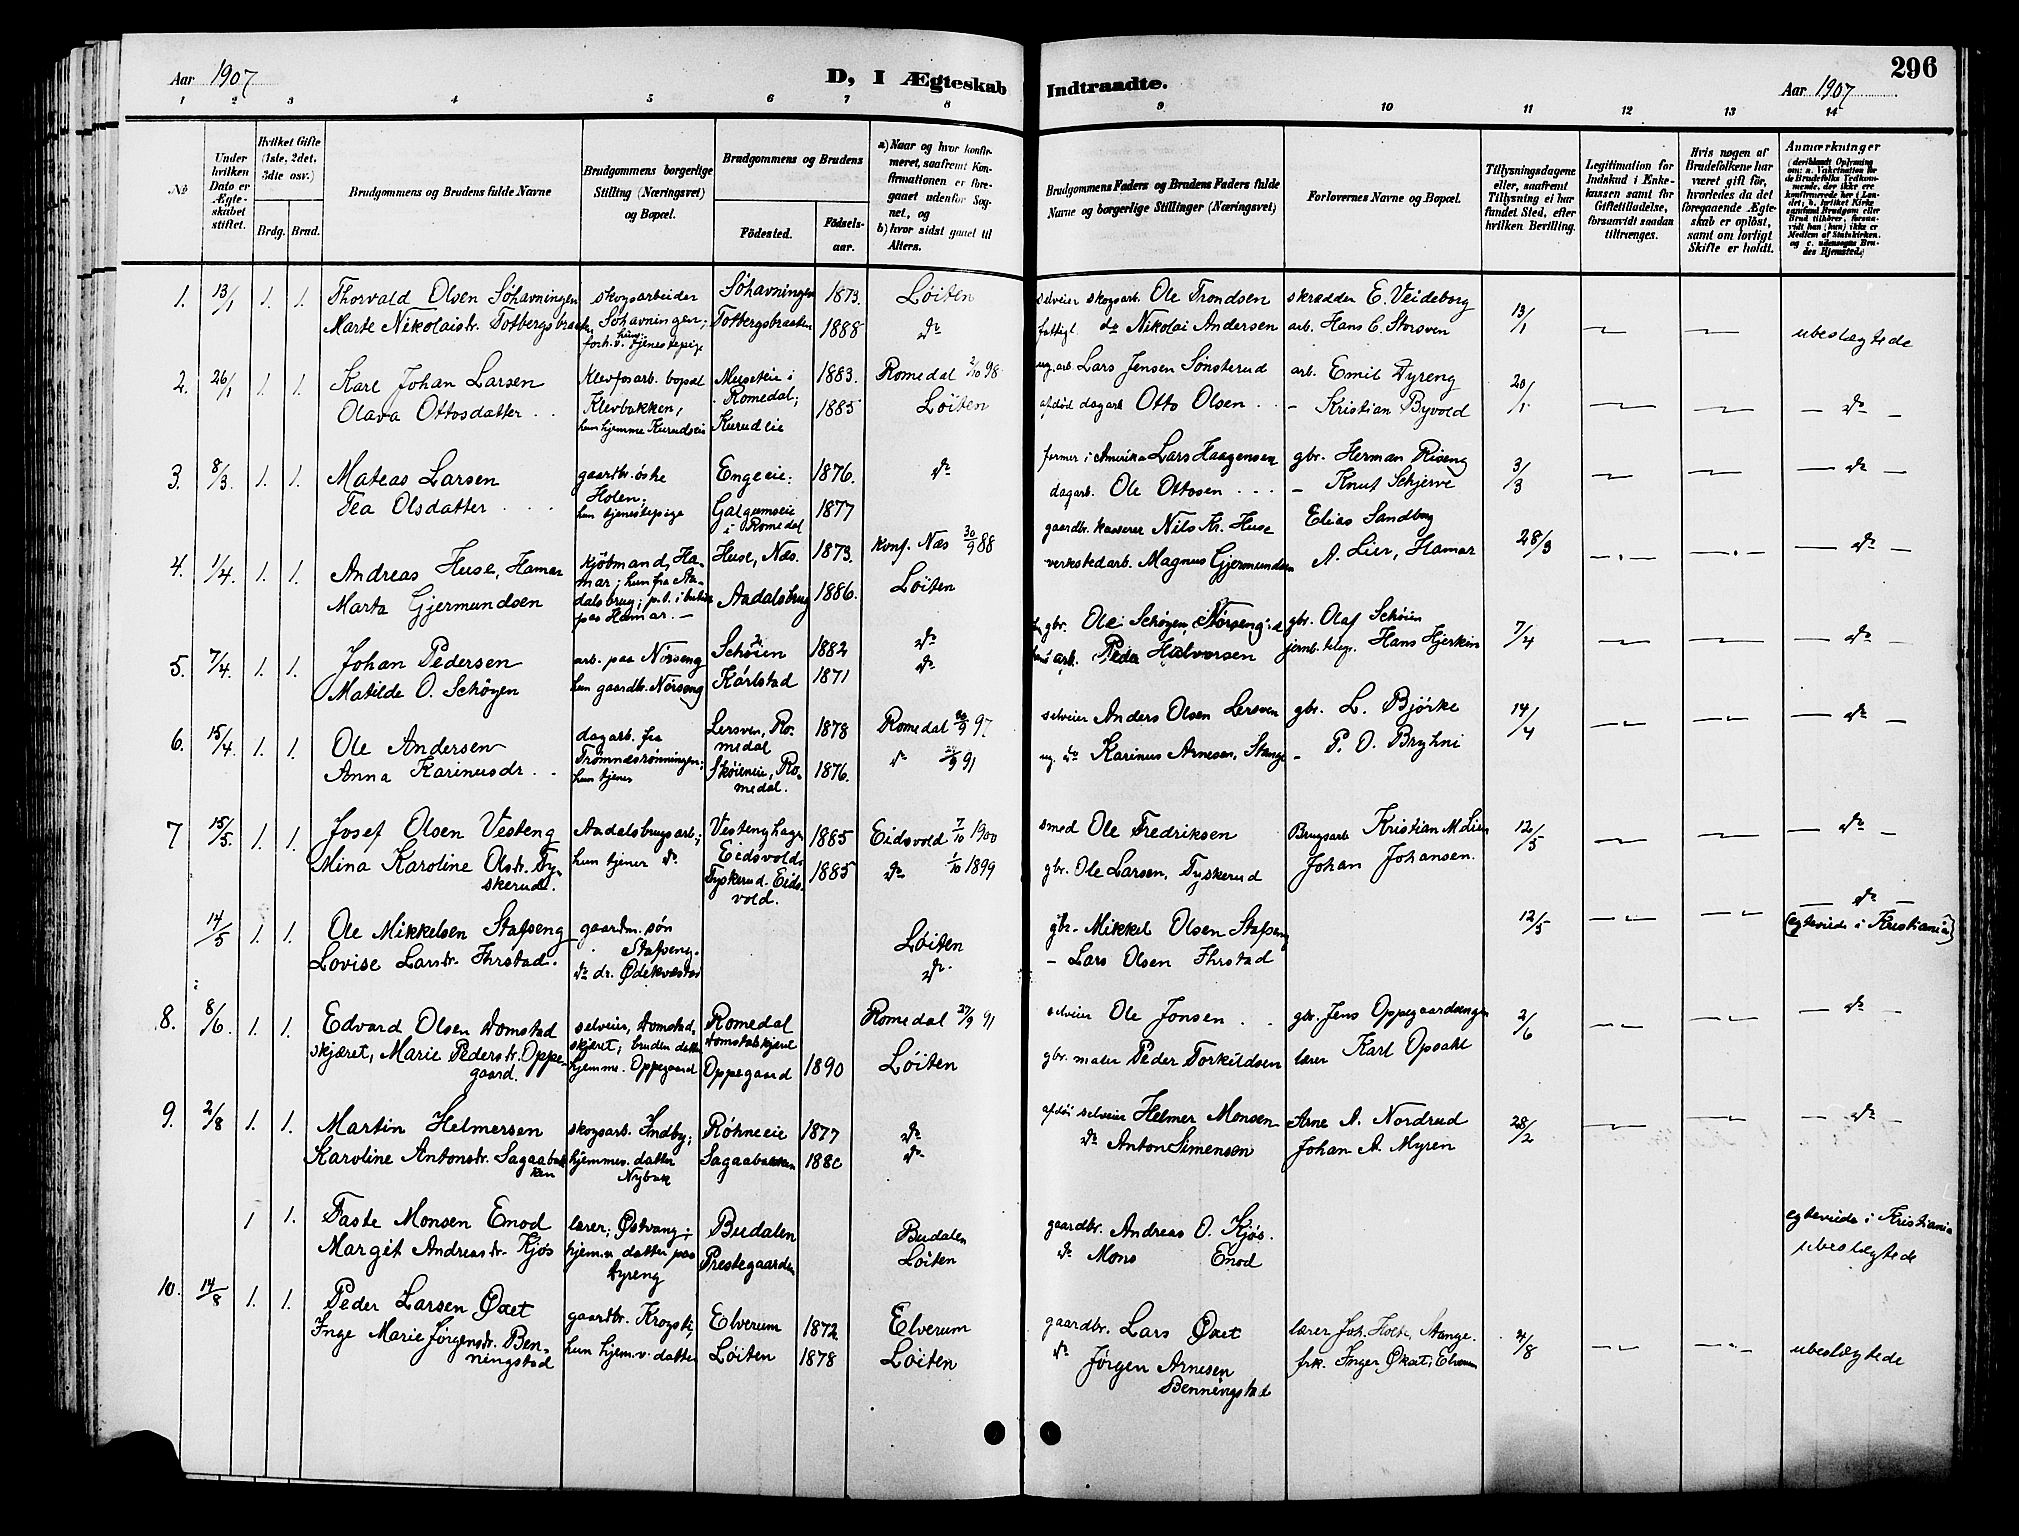 Aar 1907
D, I Ægteskab
Indtraadte.
Aar 1907
296
1 2 3 4 5 6 7 8 9 10 11 12 13 14
No
Under hvilken Dato er Ægteskabet stiftet.
Hvilket Gifte (1ste, 2det, 3die osv.)
Brdg. Brud.
Brudgommens og Brudens fulde Navne
Brudgommens borgerlige Stilling (Næringsvei) og Bopæl.
Brudgommens og Brudens
Födested.
Födselsaar.
a) Naar og hvor konfirmeret, saafremt Konfirmationen er foregaaet udenfor Sognet, og
b) hvor sidst gaaet til Alters.
Brudgommens Faders og Brudens Faders fulde Navne og borgerlige Stillinger (Næringsvei)
Forlovernes Navne og Bopæl.
Tillysningsdagene eller, saafremt Tillysning ei har fundet Sted, efter hvilken Bevilling.
Legitimation for Indskud i Enkekassen samt for Giftetilladelse, forsaavidt saadan tiltrænges.
Hvis nogen af Brudefolkene har været gift før, hvorledes da det foregaaende Ægteskab er oplöst, samt om lovligt Skifte er holdt.
Anmærkninger
1. 13/1 1. 1. Thorvald Olsen Söhavningen skogsarbeider Söhavningen 1873. Løiten selveier skogsarb. Ole Trondsen skrædder E. Veideborg 13/1 — —
Marte Nikolaistr. Totbergsbraaten Söhavningen; hun forh.v. tjenestepige Totbergsbraaten 1888 do fattigl do Nikolai Andersen arb. Hans C. Storsven ubeslægtede
2. 26/1 1. 1. Karl Johan Larsen Klevfosarb. bopæl Museteie i Romedal; 1883. Romedal 2/10 98 ug. arb. Lars Jensen Sønsterud arb. Emil Dyreng 20/1
Olava Ottosdatter Klevbakken, hun hjemme Kurudeie Kurudeie 1885 Løiten afdød dagarb Otto Olsen – Kristian Byvold — — — do —
3. 8/3. 1. 1. Mateas Larsen gaardbr. Holen; Engeeie: 1876. do farmer i Amerika Lars Haagensen gbr. Herman Riseng 3/3 — — — do —
Tea Olsdatter hun tjenestepige Galgumseie i Romedal 1877 dagarb. Ole Ottosen – Knut Schjerve
4. 1/4. 1. 1. Andreas Huse, Hamar kjöbmand, Hamar; hun fra Aadalsbrug; p.t. i butik paa Hamar. Huse, Næs. 1873. konf. Næs 30/9 88 gaardbr. kasserer Nils Kr. Huse Elias Sandberg 28/3 — — — do —
Marta Gjermundsen Aadalsbrug 1886. Løiten verkstedarb. Magnus Gjermundsen A. Lier, Hamar
5. 7/4. 1. 1. Johan Pedersen arb. paa Norseng Schøien 1882 do gbr. Ole Schøyen, Norseng gbr. Olaf Schøien 7/4 — — — do —
Matilde O. Schøyen hun gaardbr. Norseng Karlstad 1871 do arb. Peder Halvorsen jernb. telegr. Hans Hjerkin
6. 15/4. 1. 1. Ole Andersen dagarb. fra Tromnæsrønningen; Lersven, Romedal 1878 Romedal 20/9 97 selveier Anders Olsen Lersven gbr. L. Björke 14/4 — — — do —
Anna Karinusdr. hun tjener Skøieneie, Romedal. 1876. do 91 ug. do Karinus Arnesen, Stange – P. O. Bryhni
7 15/5. 1. 1. Josef Olsen Vesteng Aadalsbrugs arb; Vestenghagen Eidsvold. 1885 Eidsvold 7/10 1900 smed Ole Fredriksen Brugsarb Kristian M. Lien 12/5 — — — do —
Mina Karoline Olsdr. Tyskerud. hun tjener do Tyskerud. Eidsvold. 1885 do 1/10 1899 gbr. Ole Larsen, Tyskerud Johan Johansen.
14/5 1. 1. Ole Mikkelsen Stafseng gaardm. søn Stafseng. Løiten gbr. Mikkel Olsen Stafseng 12/5 — — — do — (egteviede i Kristiania)
Lovise Larsdr. Ihrstad. do dr. Ødekvæstad do – Lars Olsen Ihrstad
8. 8/6. 1. 1. Edvard Olsen Domstadskjæret, selveier, Domstadskjæret; bruden datter Romedal Domstadskjæret Romedal 27/9 91 selveier Ole Jonsen gbr. Jens Oppegaardengen 2/6 — — — do —
Marie Pedersdr. Oppegaard. hjemme. Oppegaard Oppegaard 1890 Løiten gbr. maler Peder Torkildsen lærer Karl Opsahl
9. 2/8 1. 1. Martin Helmersen skogsarb. Indby; Røhneeie 1877 do afdøi selveier Helmer Monsen Arne A. Nordrud 28/2 — — — do —
Karoline Antonsdr. Sagaabakken hjemmev. datter Nybak Sagaabakken 1880 do do Anton Simensen Johan A. Myren
1 1. Faste Monsen Enod lærer; Østvang; Budalen Budalen gaardbr. Andreas O. Kjøs. egteviede i Kristiania
Margit Andreasdr. Kjøs hjem.v. datter paa Dyreng Prestegaarden Løiten do Mons Enod ubeslægtede
10. 14/8 1. 1. Peder Larsen Øxet gaardbr. Krogsti, Elverum 1872 Elverum gaardbr. Lars Øxet lærer Joh. Holte, Stange. 4/8 — — ubeslægtede
Inge Marie Jørgensdr. Benningstad hun hjem.v. datter Løiten 1878 Løiten do Jörgen Arnesen Benningstad frk. Inger Øxet, Elverum